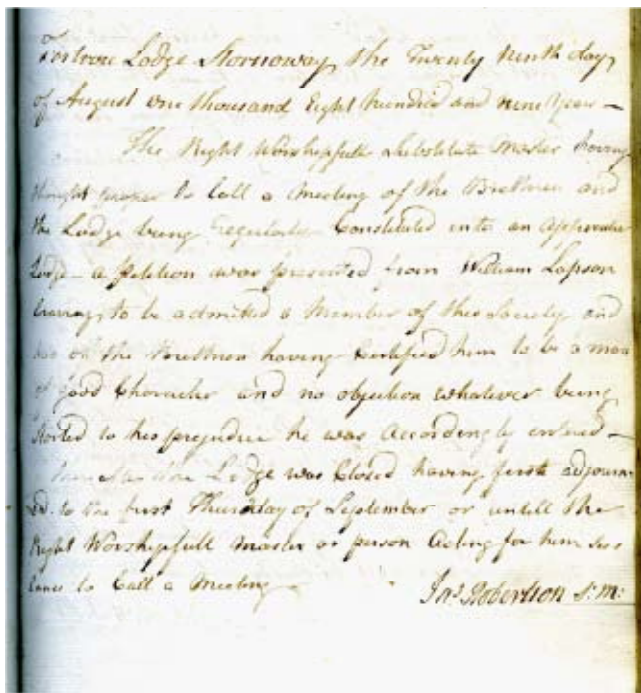 Fortrose Lodge Stornoway the Twenty Ninth day
of August one thousand Eight hundred and nine Year –
The Right Worshipfull Substitute Master having
thought proper to Call a Meeting of the Brethren and
the Lodge being regularly Constituted into an Apprentice
Lodge – a Petition was presented from William Lapson
Craving to be admitted a Member of this Society and
two of the Brethren having Certified him to be a man
of good Character and no objection whatever being
Started to his prejudice he was accordingly entered –
the Lodge was Closed having first adjourn
ed to the first Thursday of September or untill the
Right Worshipfull Master or person Acting for him sees
Cause to Call a Meeting –
Jas. Robertson S: M: